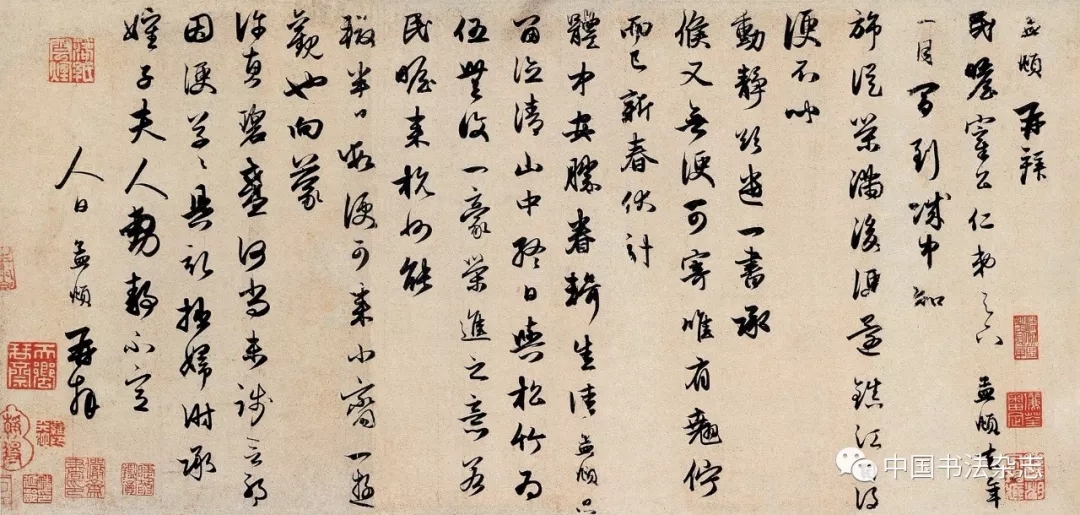 孟頫再拜
民瞻宰公仁弟足下 孟頫去年
一月間到城中知
旆從榮滿後便還鎮江
便不
動靜欲遣一書承
候又無便可寄唯有翹佇
而已新春伏計
體中安勝眷輯清孟頫只
留德清山中終日與松竹為
伍無復一豪榮進之意若
民瞻來杭州能
輟半日暇便可來小齋一遊
觀也向蒙
許惠碧盞何尚未踐言耶
因便草草具記拙婦附承
嬸子夫人動靜不宣
人日 孟頫再拜
中国书法杂志